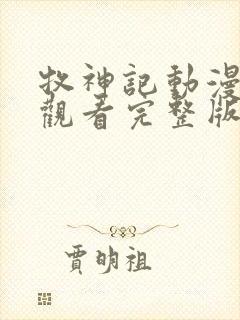 牧神記動漫
觀看完整版
賈明祖